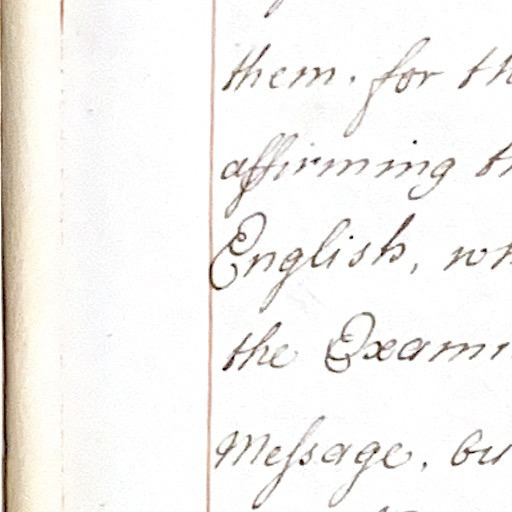 them. for th
affirming th
English, wh
the Exami
Meſsage. bu